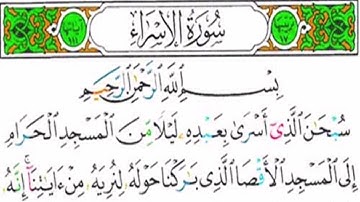 سُورَةُ الْإِسْرَاءِ
بِسْمِ اللَّهِ الرَّحْمَٰنِ الرَّحِيمِ
سُبْحَٰنَ الَّذِىٓ أَسْرَىٰ بِعَبْدِهِۦ لَيْلًا مِّنَ الْمَسْجِدِ الْحَرَامِ
إِلَى الْمَسْجِدِ الْأَقْصَا الَّذِى بَٰرَكْنَا حَوْلَهُۥ لِنُرِيَهُۥ مِنْ ءَايَٰتِنَآ ۚ إِنَّهُۥ